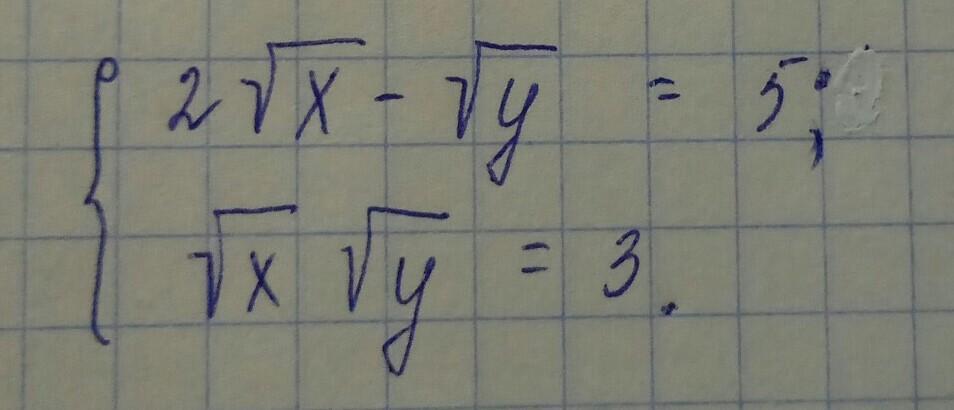 2√x - √y = 5;
√x √y = 3.